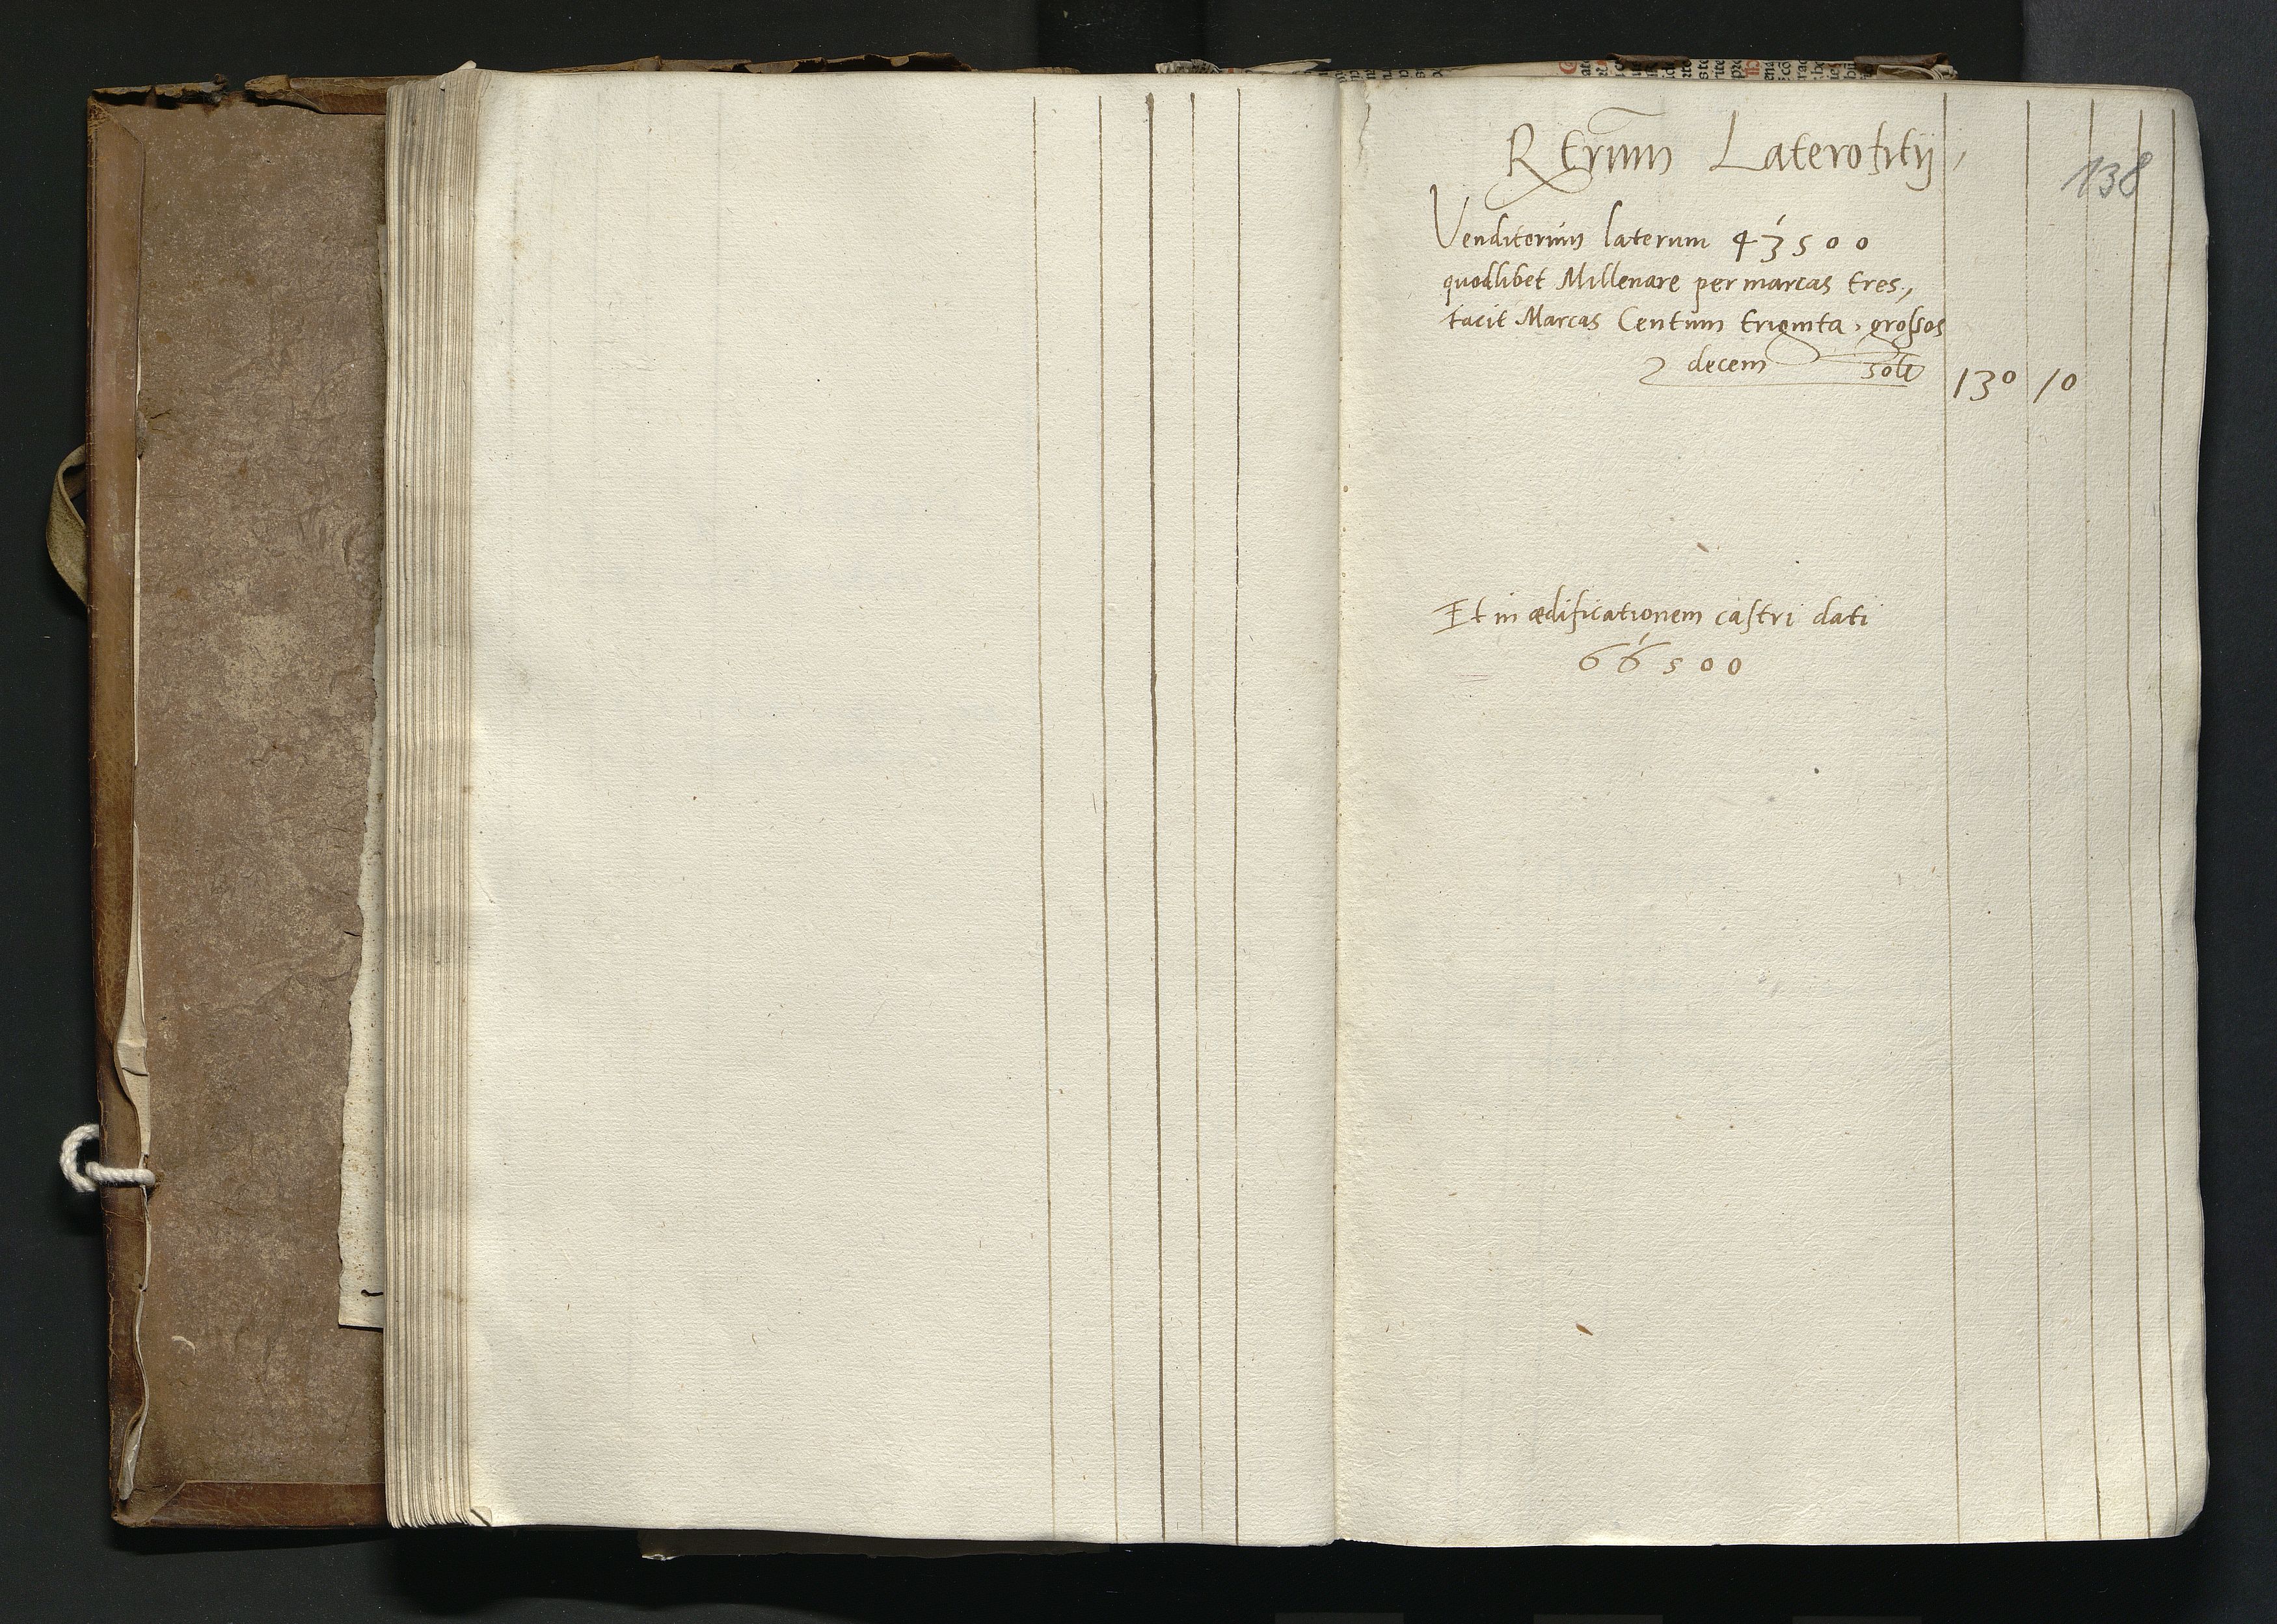 Rerum Laterofitij
138
Venditorum laterum 43500
quodlibet Millenare per marcas tres,
facit Marcas Centum triginta, grossos
decem 130 10
Et in ædificationem castri dati
66500